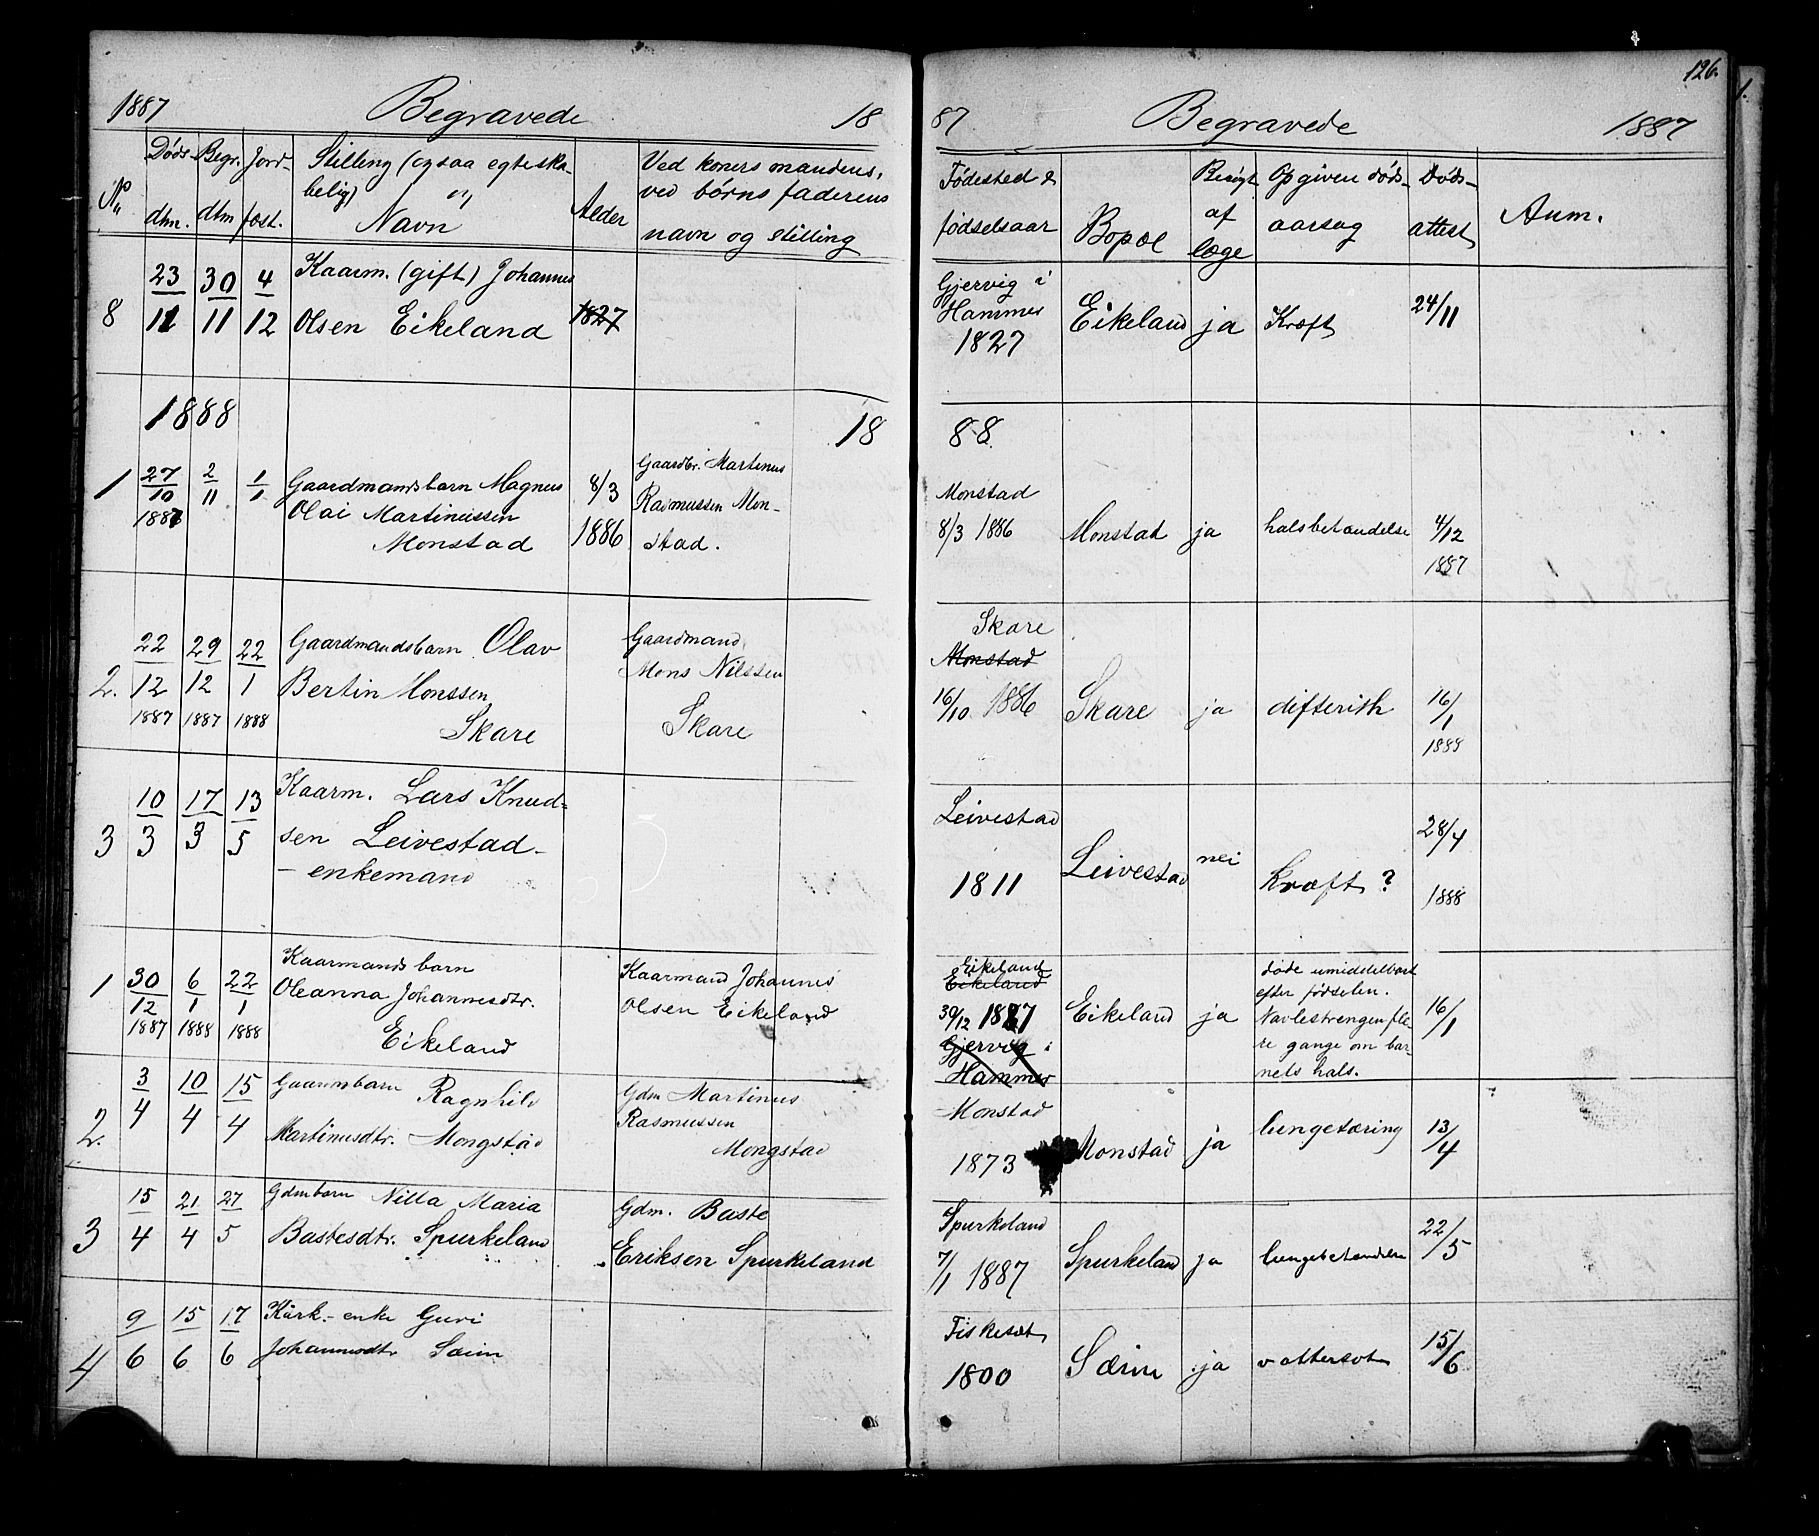 126.
1887 Begravede 18
87 Begravede 1887
No
Døds-
dtm.
Begr.
dtm
Jord-
fæst.
Stilling (ogsaa egteska-
belig)
Navn
Alder
Ved koners mandens,
ved børns faderens
navn og stilling
Fødested &
fødselsaar
Bopæl
Besøgt
af
læge
Opgiven døds-
aarsag
Døds-
attest
Anm.
8
23/11
30/11
4/12
Kaarm. (gift) Johannes
Olsen Eikeland
1827
Gjervig i
Hammer
1827
Eikeland
ja
Kræft
24/11
1888 18
88
1
27/10
1887
2/11
1/1
Gaardmandsbarn Magnus
Olai Martinussen
Monstad
8/3
1886
Gaardbr. Martinus
Rasmussen Mon-
stad.
Monstad
8/3 1886
Monstad
ja
halsbetændelse
4/12
1887
2.
22/12
1887
29/12
1887
22/1
1888
Gaardmandsbarn Olav
Bertin Monssen
Skare
Gaardmand
Mons Nilssen
Skare
Skare
Monstad
16/10 1886
Skare
ja
difterith
16/1
1888
3
10/3
17/3
13/5
Kaarm. Lars Knud-
sen Leivestad -
- enkemand
Leivestad
1811
Leivestad
nei
Kræft?
28/4
1888
1
30/12
1887
6/1
1888
22/1
1888
Kaarmandsbarn
Oleanna Johannesdtr.
Eikeland
Kaarmand Johannes
Olsen Eikeland
Eikeland
Eikeland
30/12 1887
Gjervig i
Hammer
Eikeland
ja
døde umiddelbart
efter fødselen.
Navlestrengen fle-
re gange om bar-
nets hals.
16/1
2.
3/4
10/4
15/4
Gaarmbarn Ragnhild
Martinusdtr. Mongstad
Gdm Martinus
Rasmussen
Mongstad
Monstad
1873
Monstad
ja
lungetæring
13/4
3
15/4
21/4
27/5
Gdmbarn Nilla Maria
Bastesdtr. Spurkeland
Gdm. Baste
Eriksen Spurkeland
Spurkeland
7/1 1887
Spurkeland
ja
lungebetændelse
22/5
4
9/6
15/6
17/6
Kårk.-enke Guri
Johannesdtr Sæim
Fiskeset
1800
Sæim
ja
vattersot
15/6